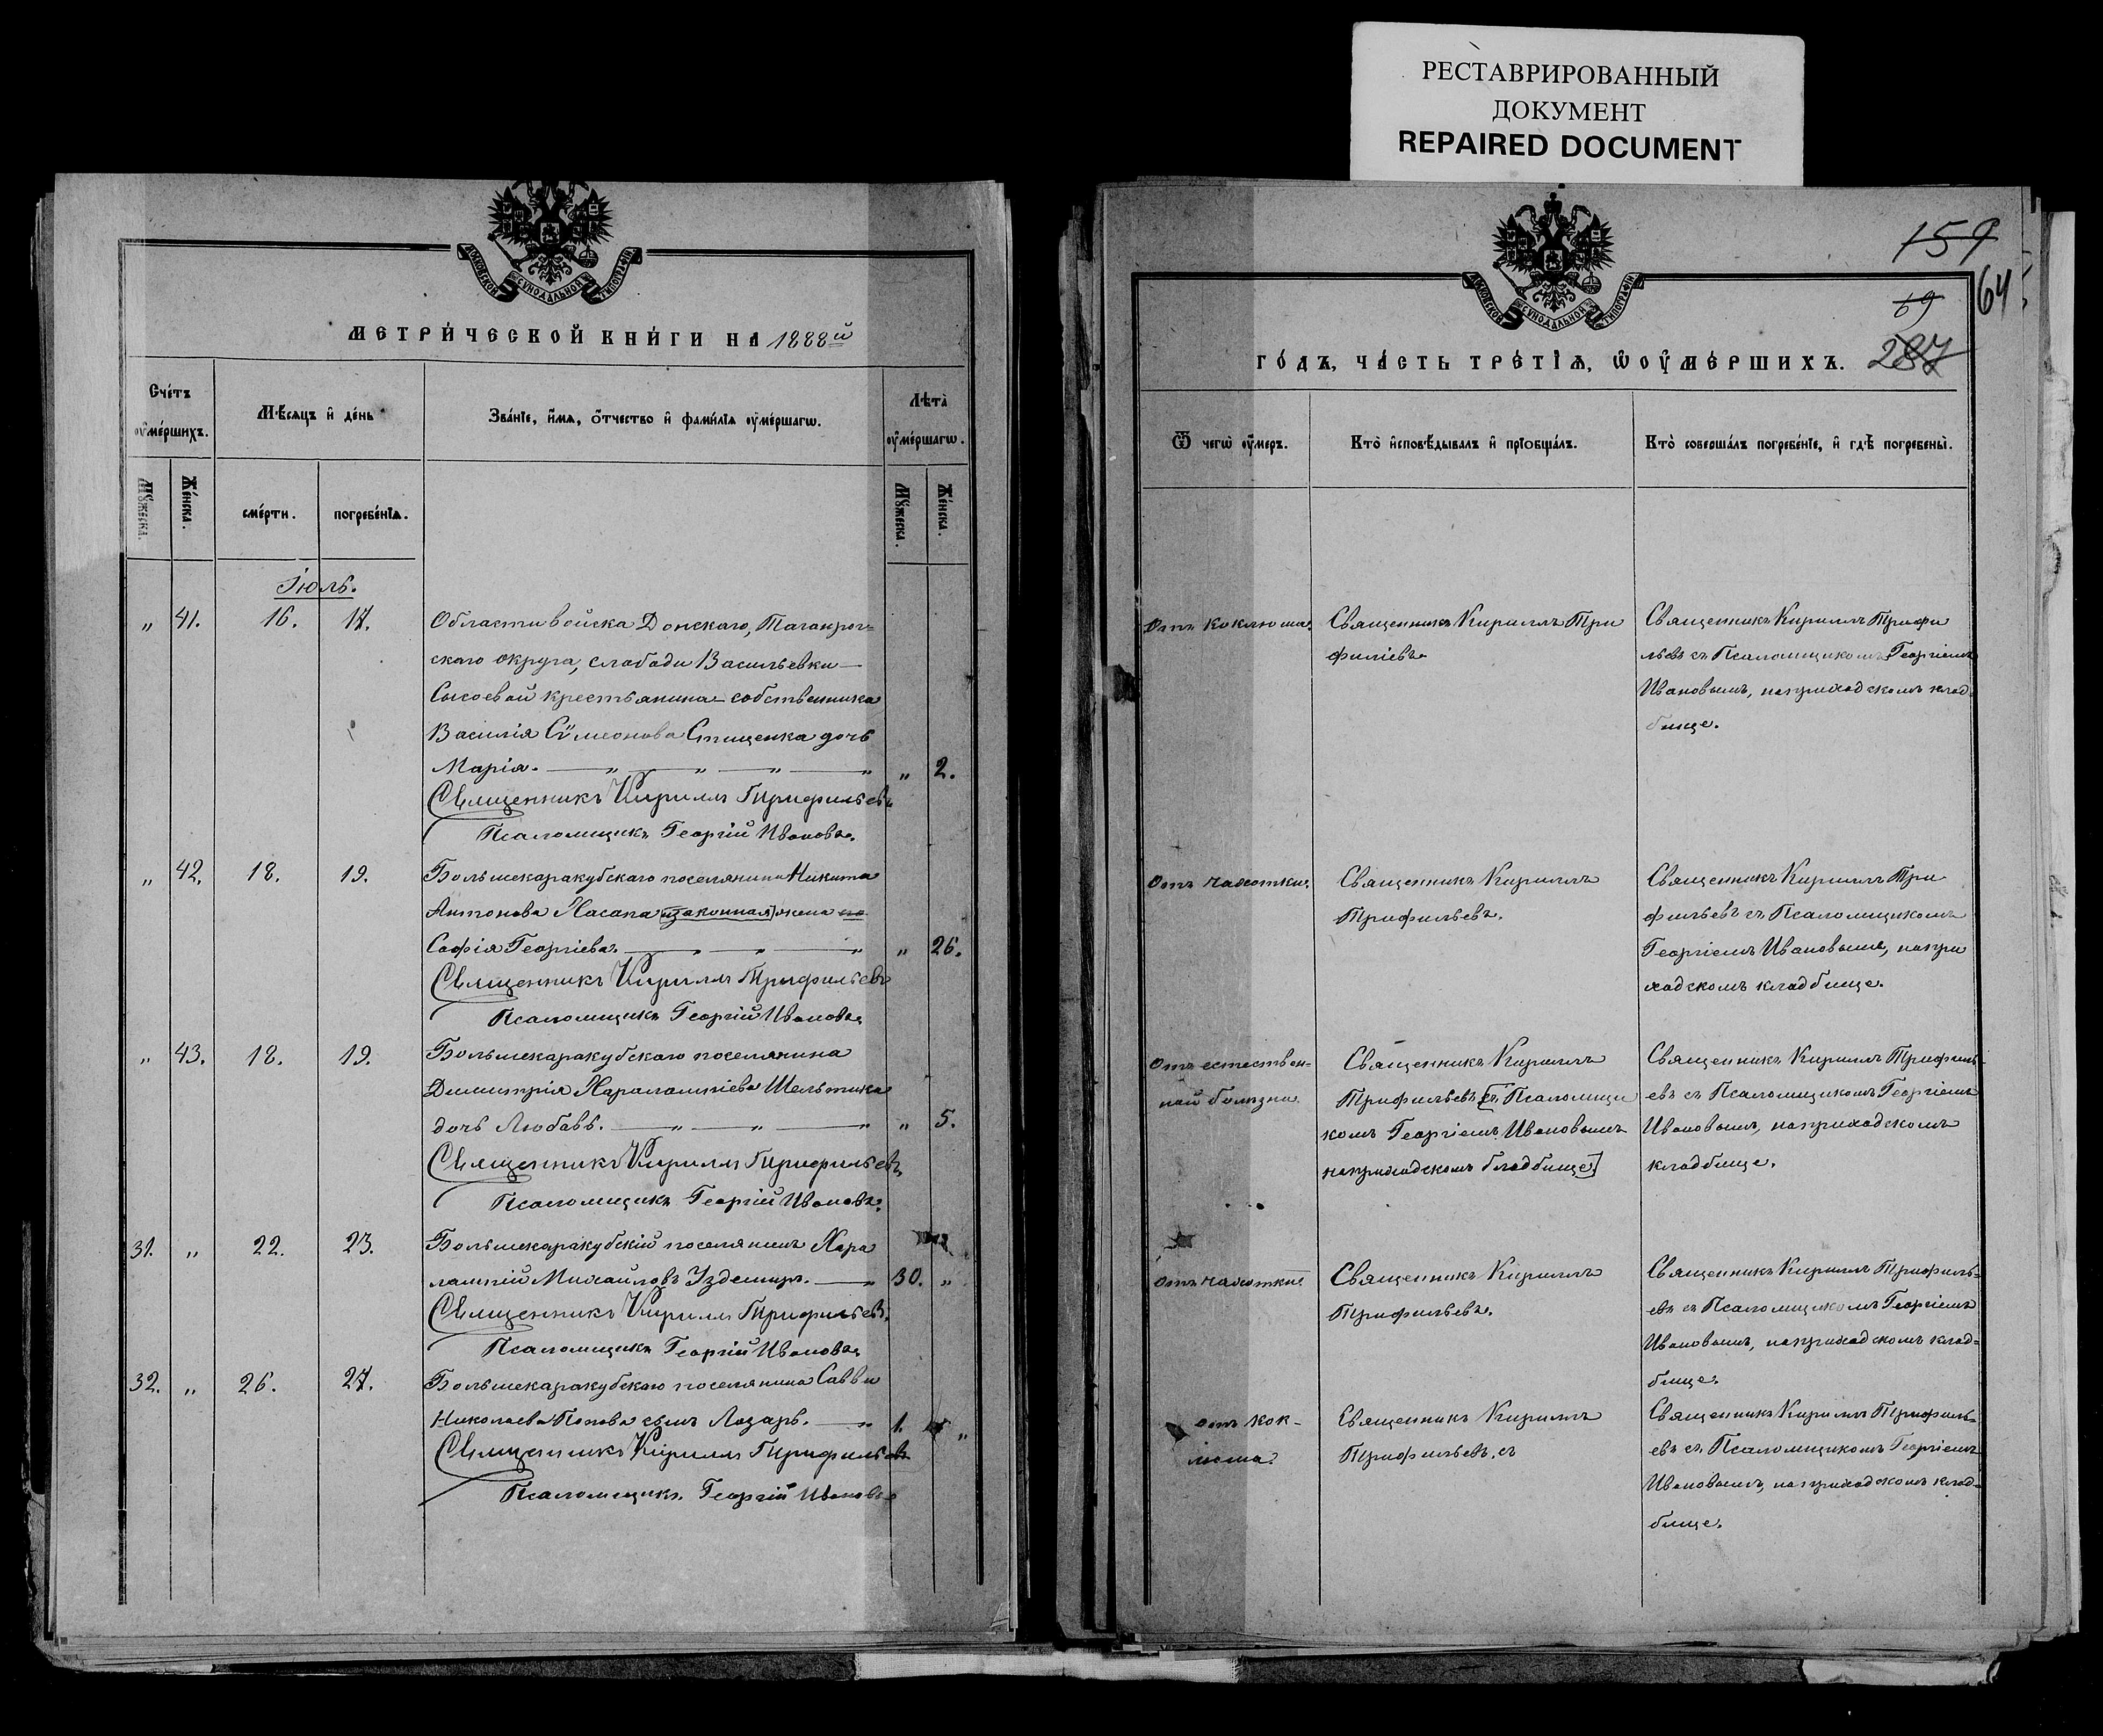 РЕСТАВРИРОВАННЫЙ
ДОКУМЕНТ
REPAIRED DOCUMENT
МОСКОВСКОЙ СѴНОДАЛЬНОЙ ТИПОГРАФІИ
МЕТРИ́ЧЕСКОЙ КНИ́ГИ НА 1888й
Сче́тъ
оуме́ршихъ.
Мѣсяцъ и де́нь
Зва́нїе, и́мѧ, о́тчество и фами́лїѧ оуме́ршагѡ.
Лѣта̀
оуме́ршагѡ.
Мꙋ́жеска.
Же́нска.
сме́рти.
погребе́нїѧ.
Мꙋ́жеска.
Же́нска.
Іюль.
„ 41. 16. 17. Области войска Донскаго, Таганрог=
скаго округа, слободы Васильевки—
Сысоевой крестьянина-собственника
Василія Сѵмеонова Стищенка дочь
Марія. — „ — „ — „ — „ „ 2.
Священникъ Кириллъ Трифильевъ
Псаломщикъ Георгій Ивановъ.
„ 42. 18. 19. Большекаракубскаго поселянина Никита
Антонова Хасапа [законная] жена
Софія Георгіева. — „ — „ — „ „ 26.
Священникъ Кириллъ Трифильевъ
Псаломщикъ Георгій Ивановъ.
„ 43. 18. 19. Большекаракубскаго поселянина
Димитрія Харалампіева Шелытика
дочь Любовь. — „ — „ — „ „ 5.
Священникъ Кириллъ Трифильевъ
Псаломщикъ Георгій Ивановъ.
31. „ 22. 23. Большекаракубскій поселянинъ Хара
лампій Михайловъ Уздемиръ. — „ 30. „
Священникъ Кириллъ Трифильевъ
Псаломщикъ Георгій Ивановъ.
32. „ 26. 27. Большекаракубскаго поселянина Саввы
Николаева Попова сынъ Лазарь. — „ 1. „
Священникъ Кириллъ Трифильевъ
Псаломщикъ Георгій Ивановъ
159
64
69
287
МОСКОВСКОЙ СѴНОДАЛЬНОЙ ТИПОГРАФІИ
ГО́ДЪ, ЧА́СТЬ ТРЕ́ТЇѦ, Ѡ ОУМЕ́РШИХЪ.
Ѿ чегѡ̀ оу́меръ.
Кто̀ исповѣ́дывалъ и прїобща́лъ.
Кто̀ соверша́лъ погребе́нїе, и гдѣ̀ погребены̀.
Отъ коклюша.
Священникъ Кириллъ Три
филіевъ.
Священникъ Кириллъ Трифи
льевъ съ Псаломщикомъ Георгіемъ
Ивановымъ, на приходскомъ клад-
бище.
Отъ чахотки.
Священникъ Кириллъ
Трифильевъ.
Священникъ Кириллъ Три
фильевъ съ Псаломщикомъ
Георгіемъ Ивановымъ, на при
ходскомъ кладбище.
Отъ естествен-
ной болезни
Священникъ Кириллъ
Трифильевъ [съ Псаломщи
комъ Георгіемъ Ивановымъ
на приходскомъ кладбище]
Священникъ Кириллъ Трифиль-
евъ съ Псаломщикомъ Георгіемъ
Ивановымъ, на приходскомъ
кладбище.
Отъ чахотки
Священникъ Кириллъ
Трифильевъ.
Священникъ Кириллъ Трифиль=
евъ съ Псаломщикомъ Георгіемъ
Ивановымъ, на приходскомъ клад-
бище.
Отъ кок-
люша.
Священникъ Кириллъ
Трифильевъ. съ
Священникъ Кириллъ Трифиль=
евъ съ Псаломщикомъ Георгіемъ
Ивановымъ, на приходскомъ клад-
бище.